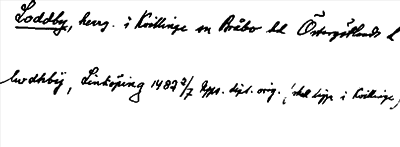 Loddby, herrg. i Kvillinge sn Bråbo hd Östergötlands l
lwdhbij, Linköping 1482 2/7 Upps. dipl. orig. (skall ligga i Kvillinge)